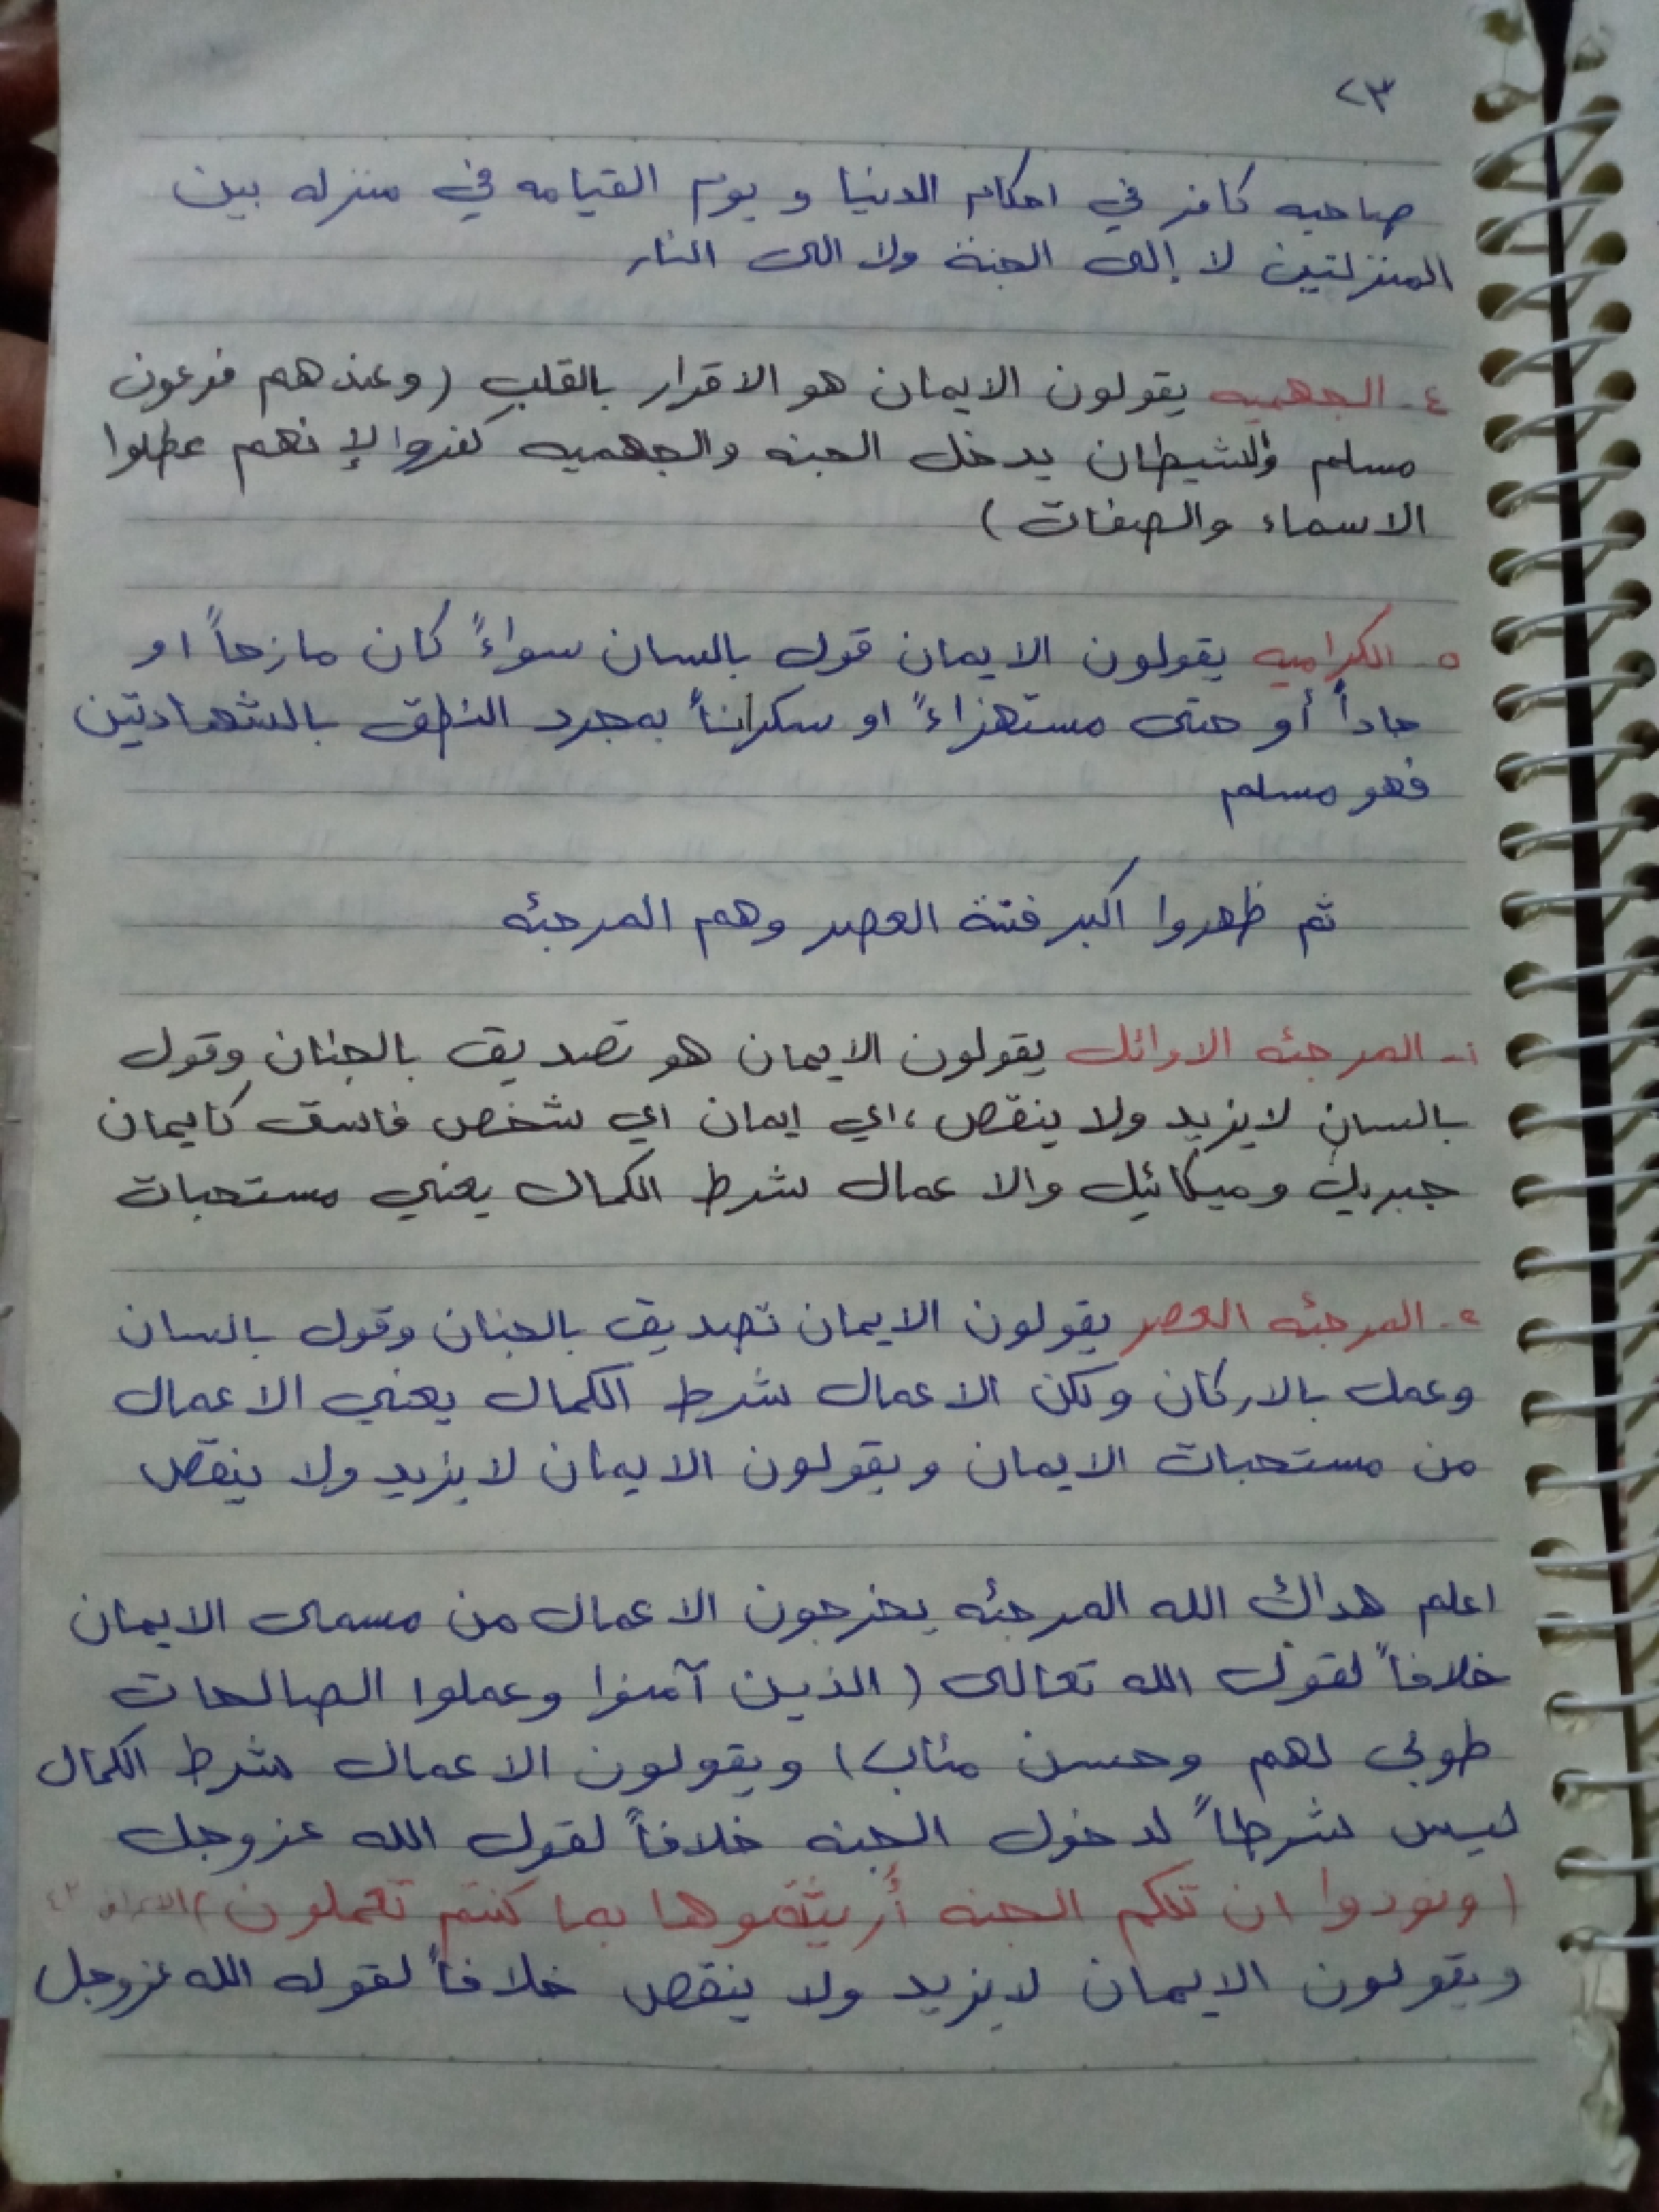 ٢٣
صاحبه كافر في احكام الدنيا و يوم القيامه في منزله بين
المنزلتين لا إلى الجنة ولا الى النار
٤- الجهميه يقولون الايمان هو الاقرار بالقلب (وعندهم فرعون
مسلم والشيطان يدخل الجنه والجهميه كفروا لإنهم عطلوا
الاسماء والصفات)
٥- الكراميه يقولون الايمان قول بالسان سواءً كان مازحاً او
جاداً أو حتى مستهزاءً او سكراناً بمجرد النطق بالشهادتين
فهو مسلم
ثم ظهروا اكبر فتنة العصر وهم المرجئه
١- المرجئه الاوائل يقولون الايمان هو تصديق بالجنان وقول
بالسان لايزيد ولا ينقص ، اي ايمان اي شخص فاسق كايمان
جبريل وميكائيل والاعمال شرط الكمال يعني مستحبات
٢- المرجئه العصر يقولون الايمان تصديق بالجنان وقول بالسان
وعمل بالاركان ولكن الاعمال شرط الكمال يعني الاعمال
من مستحبات الايمان ويقولون الايمان لايزيد ولا ينقص
اعلم هداك الله المرجئه يخرجون الاعمال من مسمى الايمان
خلافاً لقول الله تعالى (الذين آمنوا وعملوا الصالحات
طوبى لهم وحسن مئاب) ويقولون الاعمال شرط الكمال
ليس شرطاً لدخول الجنه خلافاً لقول الله عزوجل
(ونودوا ان تلكم الجنه أُرثتموها بما كنتم تعملون) الاعراف ٤٣
ويقولون الايمان لايزيد ولا ينقص خلافاً لقوله الله عزوجل